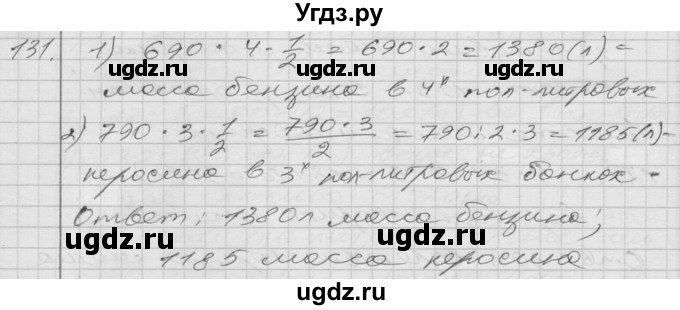 Угдз.ру
131. 1) 690 · 4 · 1/2 = 690 · 2 = 1380(л) =
масса бензина в 4х пол-литровых
2) 790 · 3 · 1/2 = 790 · 3/2 = 790 : 2 · 3 = 1185(л)-
керосина в 3х пол-литровых банках.
Ответ: 1380л масса бензина;
1185 масса керосина
ugdz.ru
ugdz.ru
ugdz.ru
ugdz.ru
ugdz.ru
ugdz.ru
ugdz.ru
ugdz.ru